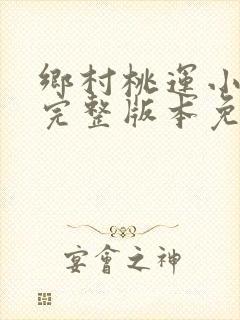 鄉村桃運小
完整版本免
宴會之神